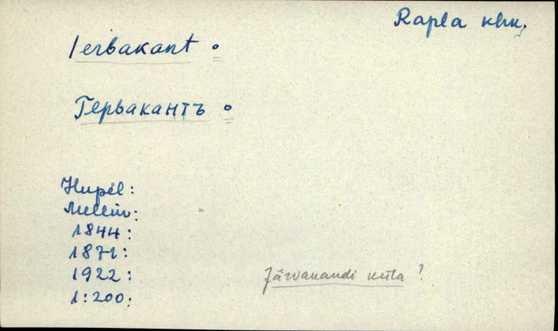 Rapla khn.
Ierbakant o
Гербакантъ o
Hupel:
Mellin:
1844:
1871:
1922:
Järvakandi küla ?
1:200: